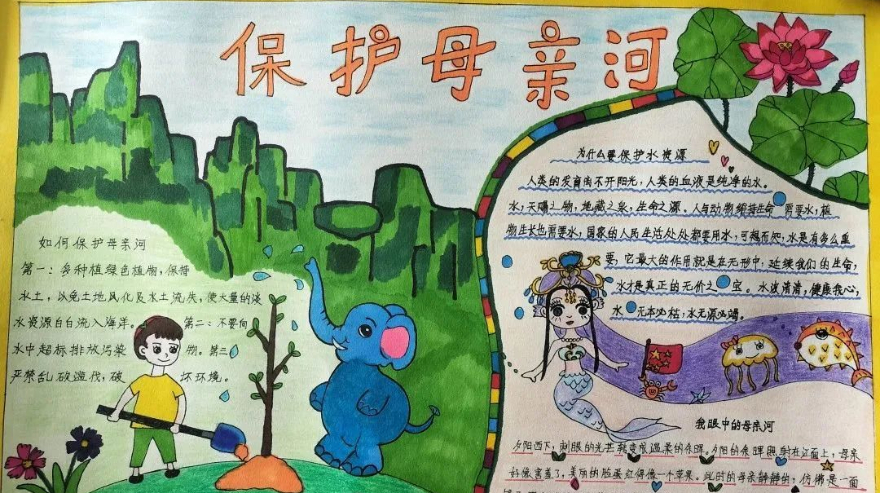 保护母亲河
如何保护母亲河
第一：多种植绿色植物，保持
水土，以免土地风化及水土流失，使大量的淡
水资源白白流入海洋。第二：不要向
水中超标排放污染物。第三
严禁乱砍滥伐，破坏环境。
为什么要保护水资源
人类的发育离不开阳光，人类的血液是纯净的水。
水，天赐之物，地藏之泉，生命之源。人与动物维持生命需要水，植
物生长也需要水，国家的人民生活处处都要用水，可想而知，水是有多么重
要，它最大的作用就是在无形中，延续我们的生命，
水才是真正的无价之宝。水波清清，健康我心，
水无本必枯，水无源必竭。
我眼中的母亲河
夕阳西下，刺眼的光芒就变成温柔的余晖。夕阳的余晖照射在江面上，母亲
好像害羞了，美丽的脸蛋红得像一个苹果。此时的母亲静静的，仿佛是一面